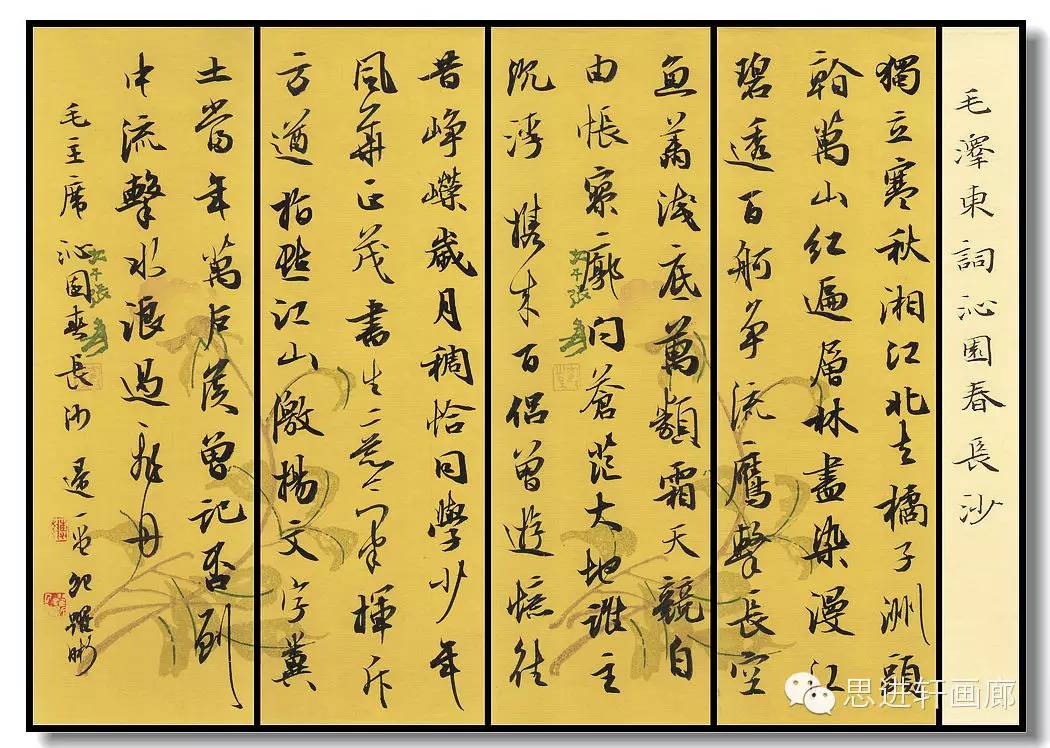 毛澤東詞沁園春長沙
獨立寒秋湘江北去橘子洲頭
看萬山红遍層林盡染漫江
碧透百舸争流鷹擊長空
魚翔淺底萬類霜天競自
由悵寥廓問蒼茫大地誰主
沉浮 携来百侣曾遊憶往
昔峥嶸歲月稠恰同學少年
風華正茂書生意氣揮斥
方遒指點江山激揚文字糞
土當年萬户侯曾記否到
中流擊水浪遏飛舟
毛主席沁園春長沙
思进轩画廊